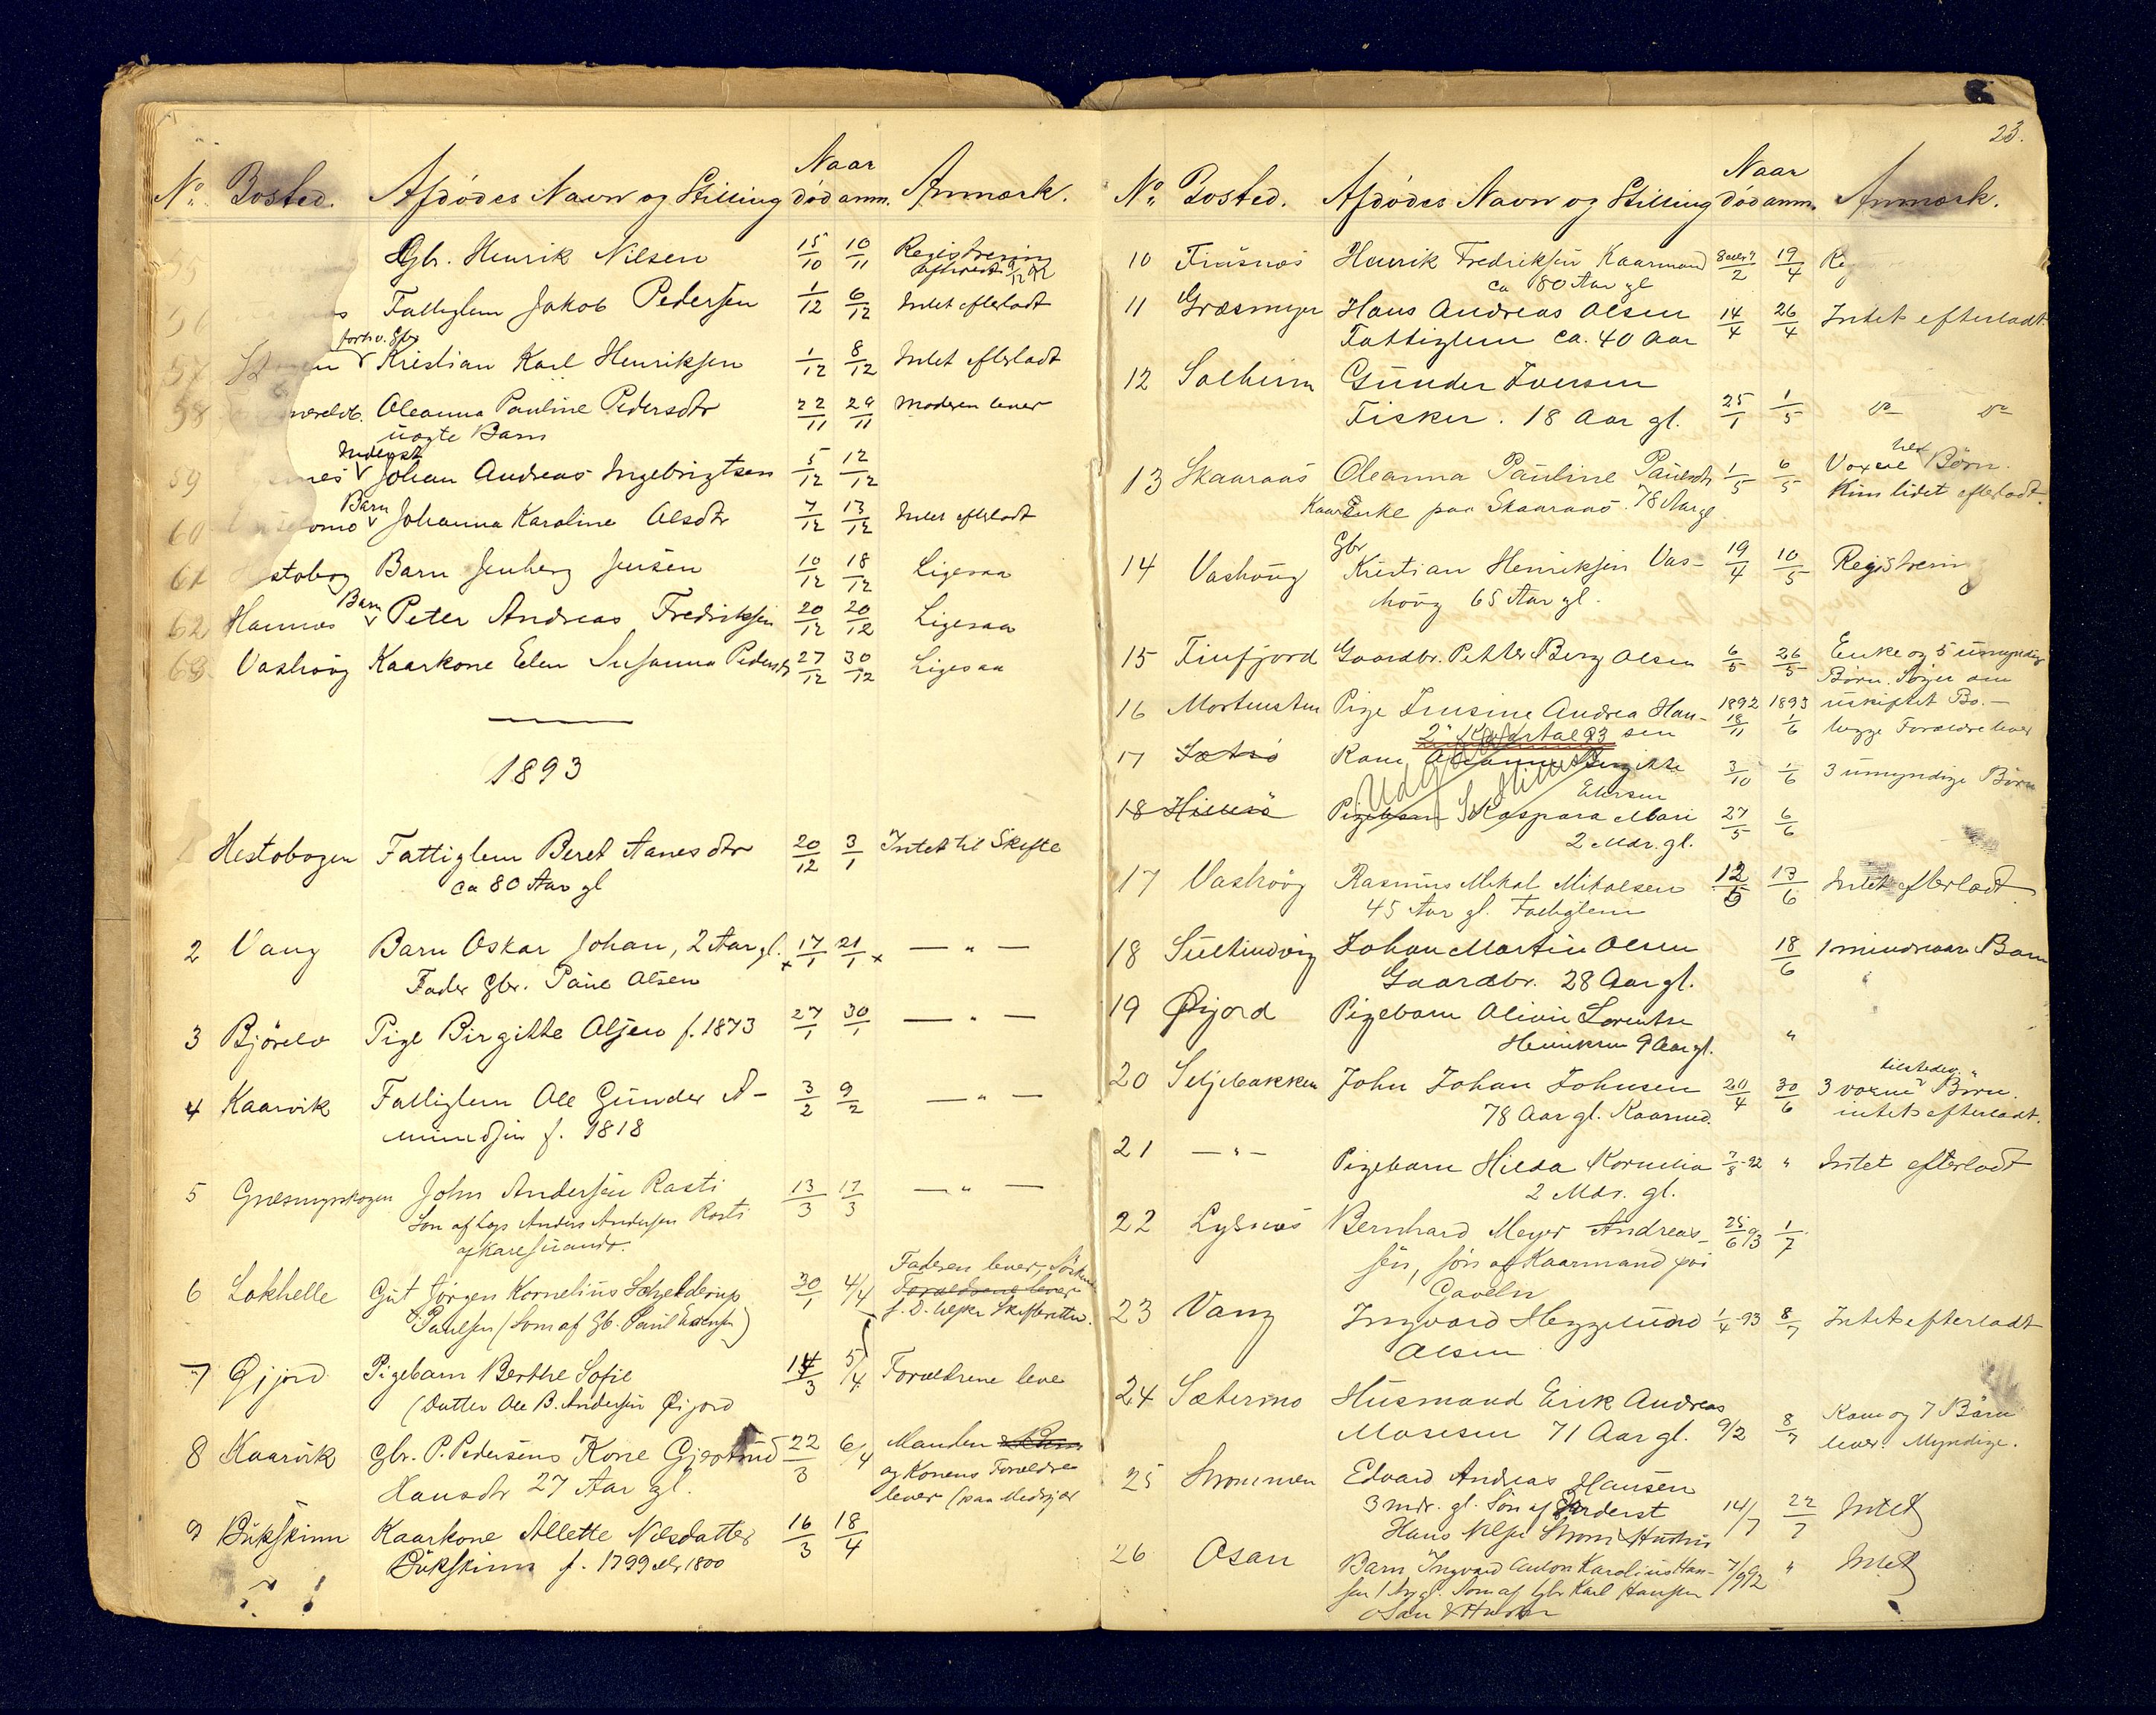 Naar
No. Bosted. Afdödes Navn og Stilling död anm. Anmærk.
55 Gbr. Henrik Nilsen 15/10 10/11 Registrering
afholdt 9/12 92
56 Fattiglem Jakob Pedersen 1/12 6/12 Intet efterladt
forhv. Gbr
57 Kristian Karl Henriksen 1/12 8/12 Intet efterladt
58 Oleanna Pauline Pedersdtr 22/11 29/11 Moderen lever
uægte Barn
Inderst
59 Johan Andreas Ingebrigtsen 5/12 12/12
Barn
60 Johanna Karoline Olsdtr 7/12 13/12 Intet efterladt
61 Barn Jenberg Jensen 10/12 18/12 Ligesaa
Barn
62 Hannes Peter Andreas Fredriksen 20/12 20/12 Ligesaa
63 Vashöug Kaarkone Elen Susanna Pedersdtr 27/12 30/12 Ligesaa
1893
1 Hestobogen Fattiglem Beret Aanesdtr 20/12 3/1 Intet til Skifte
ca 80 Aar gl
2 Vang Barn Oskar Johan, 2 Aar gl. 17/1 21/1 — " —
Fader Gbr. Paul Olsen
3 Björelv Pige Birgitte Olsen f. 1873 27/1 30/1 — " —
4 Kaarvik Fattiglem Ole Gunder A- 3/2 9/2 — " —
mundsen f. 1818
5 Græsmyrskogen John Andersen Rasti 13/3 17/3 — " —
Sön af Lap Anders Andersen Rasti
af Karesuando.
Faderen lever, Söskende
6 Lakhelle Gut Jörgen Kornelius Schjelderup 30/1 4/4 Forældrene lever
Paulsen (Sön af Gb. Paul Essensen) f. D. Skifteretten.
7 Öijord Pigebarn Berthe Sofie 14/3 5/4 Forældrene lever
(Datter Ole B. Andersen Öijord
8 Kaarvik Gbr. P. Pedersens Kone Gjertrud 22/3 6/4 Manden
Hansdtr 27 Aar gl. og Konens Forældre
lever (paa Medbyer
9 Bukskinn Kaarkone Allette Nilsdatter 16/3 18/4
Bukskinn f. 1799 elr 1800
23.
Naar
No. Bosted. Afdödes Navn og Stilling död anm. Anmærk.
10 Finsnæs Henrik Fredriksen Kaarmand 8 eller 9/2 19/4 Reg
ca 80 Aar gl
11 Græsmyr Hans Andreas Olsen 14/4 26/4 Intet efterladt
Fattiglem ca. 40 Aar
12 Solheim Gunder Iversen
Fisker. 18 Aar gl. 25/1 1/5 do do
13 Skaaraas Oleanna Pauline Paulsdtr 1/5 6/5 Voxne Börn.
Kaarenke paa Skaaraas. 78 Aar gl. Kun lidet efterladt.
Gbr
14 Vashöug Kristian Henriksen Vas- 19/4 10/5 Registrering
höug 65 Aar gl.
15 Finfjord Gaardbr. Petter Berg Olsen 6/5 26/5 Enke og 5 umyndige
Börn. Söger om
16 Mortensten Pige Jensine Andrea Han- 1892 18/11 1893 1/6 uskiftet Bo. —
2' Kvartal 93 sen begge Forældre lever
17 Sætrö Kone Birgitte 3/10 1/6 3 umyndige Börn
Udgaar Hillesö
Elersen
18 Hillesö Pigebarn Kaspara Mari 27/5 6/6
2 Mdr. gl.
17 Vashöug Rasmus Mikal Mikalsen 12/5 13/6 Intet efterladt
45 Aar gl. Fattiglem
18 Sultindvig Johan Martin Olsen 18/6 1 mindreaar. Barn
Gaardbr. 28 Aar gl.
19 Öijord Pigebarn Olivie Lorentse "
Henriksen 9 Aar gl.
tilstede
20 Seljebakken John Johan Johnsen 20/4 30/6 3 voxne Börn.
78 Aar gl. Kaarmd. intet efterladt.
21 — " — Pigebarn Hilda Kornelia 7/8-92 " Intet efterladt
2 Mdr. gl.
22 Lysnæs Bernhard Meyer Andreas- 25/6 93 1/7
sen, sön af Kaarmand paa
Gaveln
23 Vang Ingvard Heggelund 1/4-93 8/7 Intet efterladt
Olsen
24 Sætermo Husmand Erik Andreas
Mosesen 71 Aar gl. 9/2 8/7 Kone og 7 Börn
lever. Myndige.
25 Strömmen Edvard Andreas Hansen
3 mdr. gl. Sön af Inderst 14/7 22/7 Intet
Hans Nilsen Ström & Hustru
26 Osan Barn Ingvard Anton Karolius Han- 7/9 92 " Intet
sen 1 Aar gl. Sön af Gbr Karl Hansen
Osan & Hustru